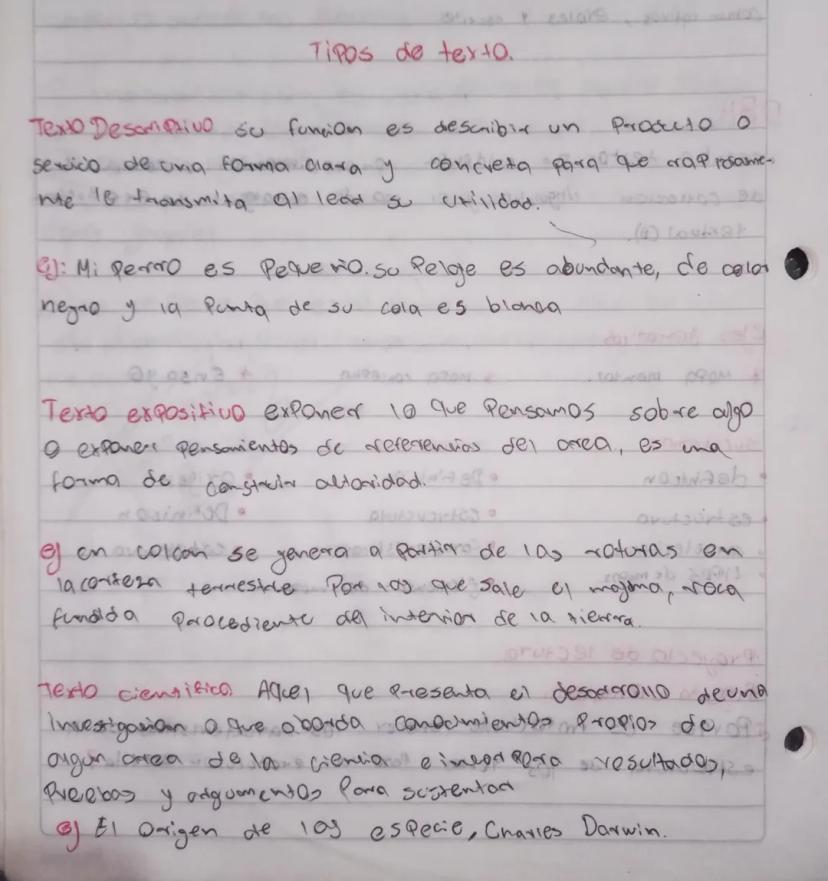 Tipos de texto.
Texto Descriptivo su función es describir un Producto o
servicio de una forma clara y concreta para que rap rosame-
nte le transmita al lead su utilidad.
Ej: Mi perro es Pequeño. su Pelge es abundante, de color
negro y la Punta de su cola es blanca
Texto expositivo exponer lo que Pensamos sobre algo
o exponer pensamientos de referencias del area, es una
forma de construir autoridad.
ej en colcan se genera a partir de las roturas en
la corteza terrestre Por las que sale el magma, roca
fundida procediente del interior de la tierra.
Texto cientifico Aquel que Presenta el desarrollo de una
Investigación o que aborda conocimientos Propios de
algun area de la ciencia e resultados,
Preebas y argumentos Para sustentar
ej El Origen de las especie, Charles Darwin.